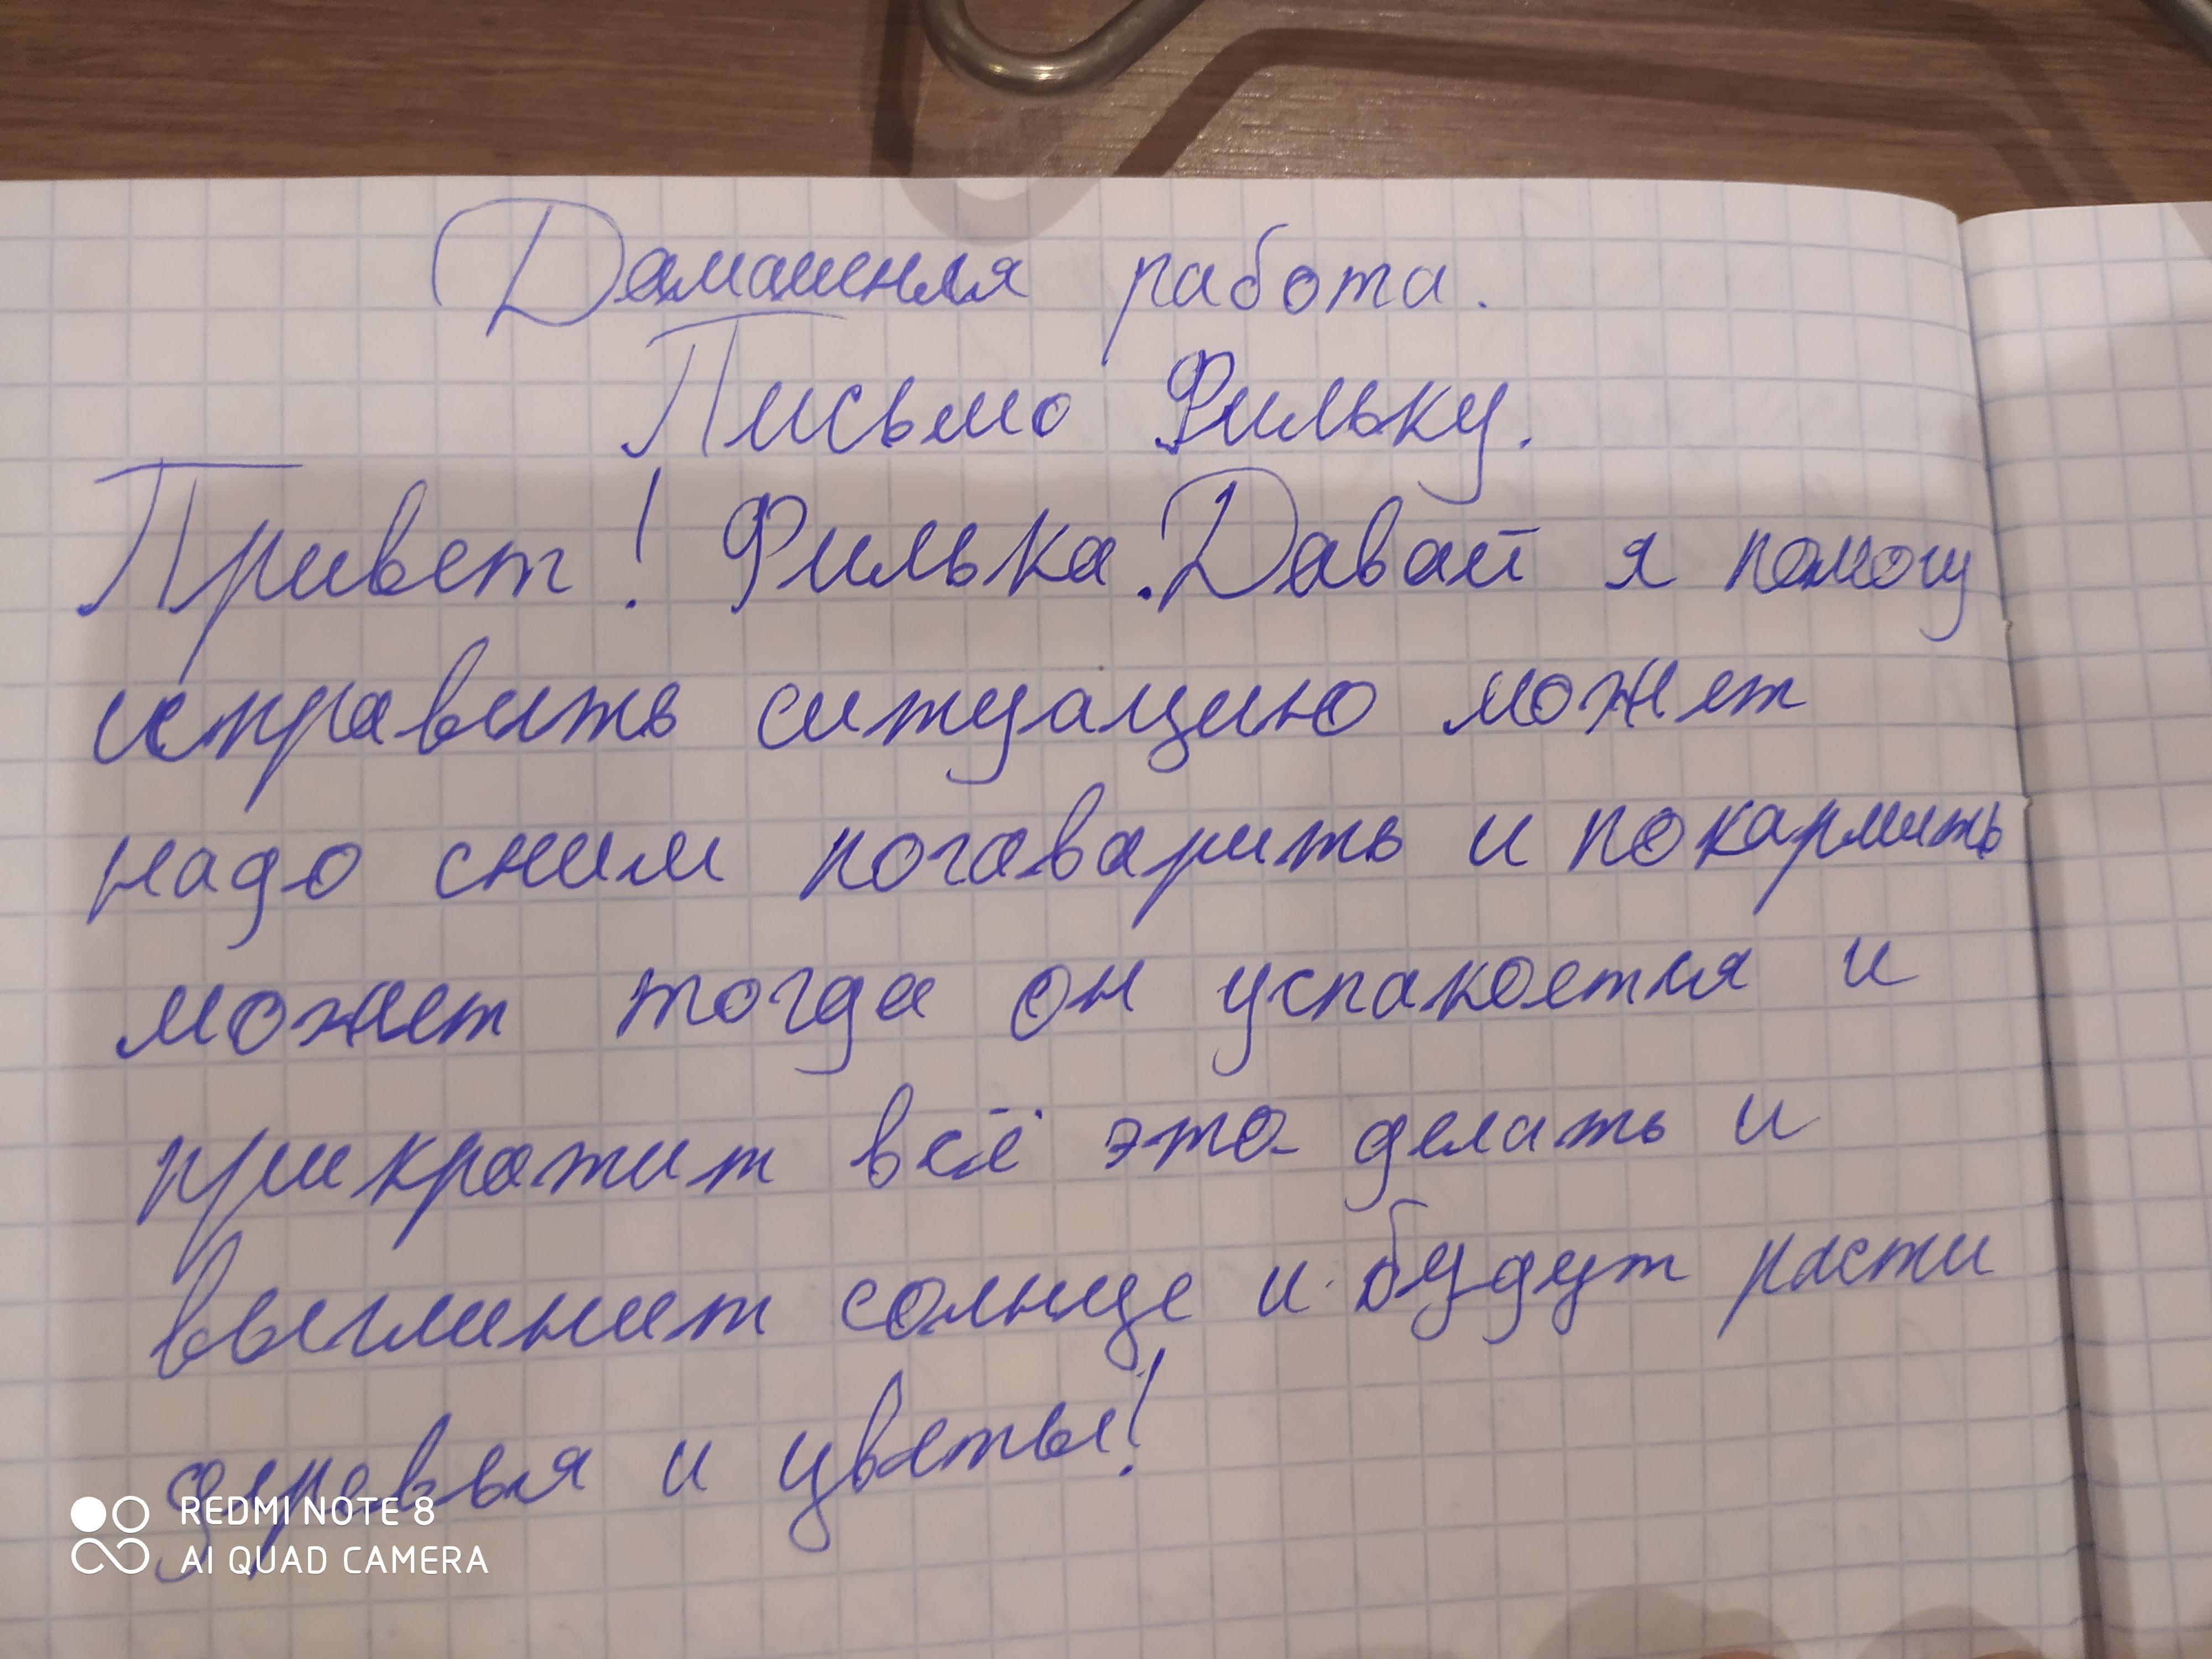 Дамашняя работа.
Письмо Фильку.
Привет! Филька. Давай я помогу
исправить ситуацию может
надо сним погаварить и покармить
может тогда он успакоется и
прикратит всё это делать и
выглинит солнце и будут расти
деревья и цветы!
REDMI NOTE 8
AI QUAD CAMERA